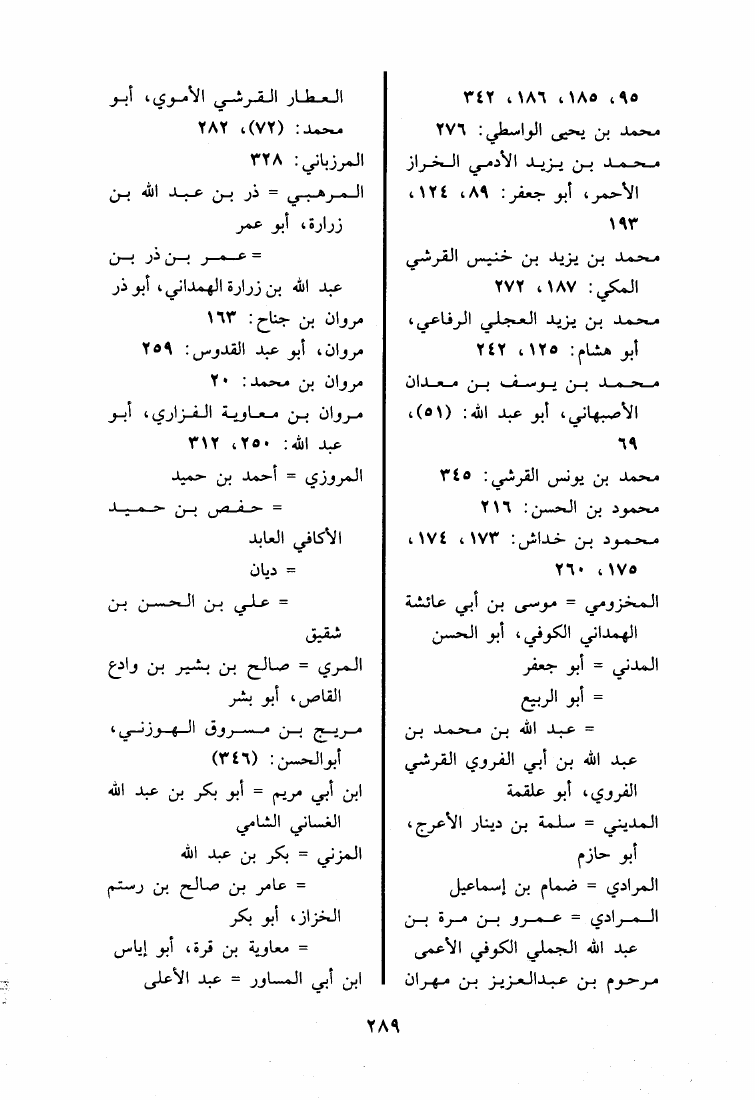 ٩٥، ١٨٥، ١٨٦، ٣٤٢
محمد بن يحيى الواسطي: ٢٧٦
محمد بن يزيد الأدمي الخراز
الأحمر، أبو جعفر: ٨٩، ١٢٤،
١٩٣
محمد بن يزيد بن خنيس القرشي
المكي: ١٨٧، ٢٧٢
محمد بن يزيد العجلي الرفاعي،
أبو هشام: ١٢٥، ٢٤٢
محمد بن يوسف بن معدان
الأصبهاني، أبو عبد الله: (٥١)،
٦٩
محمد بن يونس القرشي: ٣٤٥
محمود بن الحسن: ٢١٦
محمود بن خداش: ١٧٣، ١٧٤،
١٧٥، ٢٦٠
المخزومي = موسى بن أبي عائشة
الهمداني الكوفي، أبو الحسن
المدني = أبو جعفر
= أبو الربيع
= عبد الله بن محمد بن
عبد الله بن أبي الفروي القرشي
الفروي، أبو علقمة
المديني = سلمة بن دينار الأعرج،
أبو حازم
المرادي = ضمام بن إسماعيل
المرادي = عمرو بن مرة بن
عبد الله الجملي الكوفي الأعمى
مرحوم بن عبدالعزيز بن مهران
العطار القرشي الأموي، أبو
محمد: (٧٢)، ٢٨٢
المرزباني: ٣٢٨
المرهبي = ذر بن عبد الله بن
زرارة، أبو عمر
= عمر بن ذر بن
عبد الله بن زرارة الهمداني، أبو ذر
مروان بن جناح: ١٦٣
مروان، أبو عبد القدوس: ٢٥٩
مروان بن محمد: ٢٠
مروان بن معاوية الفزاري، أبو
عبد الله: ٢٥٠، ٣١٢
المروزي = أحمد بن حميد
= حفص بن حميد
الأكافي العابد
= ديان
= علي بن الحسن بن
شقيق
المري = صالح بن بشير بن وادع
القاص، أبو بشر
مريج بن مسروق الهوزني،
أبوالحسن: (٣٤٦)
ابن أبي مريم = أبو بكر بن عبد الله
الغساني الشامي
المزني = بكر بن عبد الله
= عامر بن صالح بن رستم
الخزاز، أبو بكر
= معاوية بن قرة، أبو إياس
ابن أبي المساور = عبد الأعلى
٢٨٩